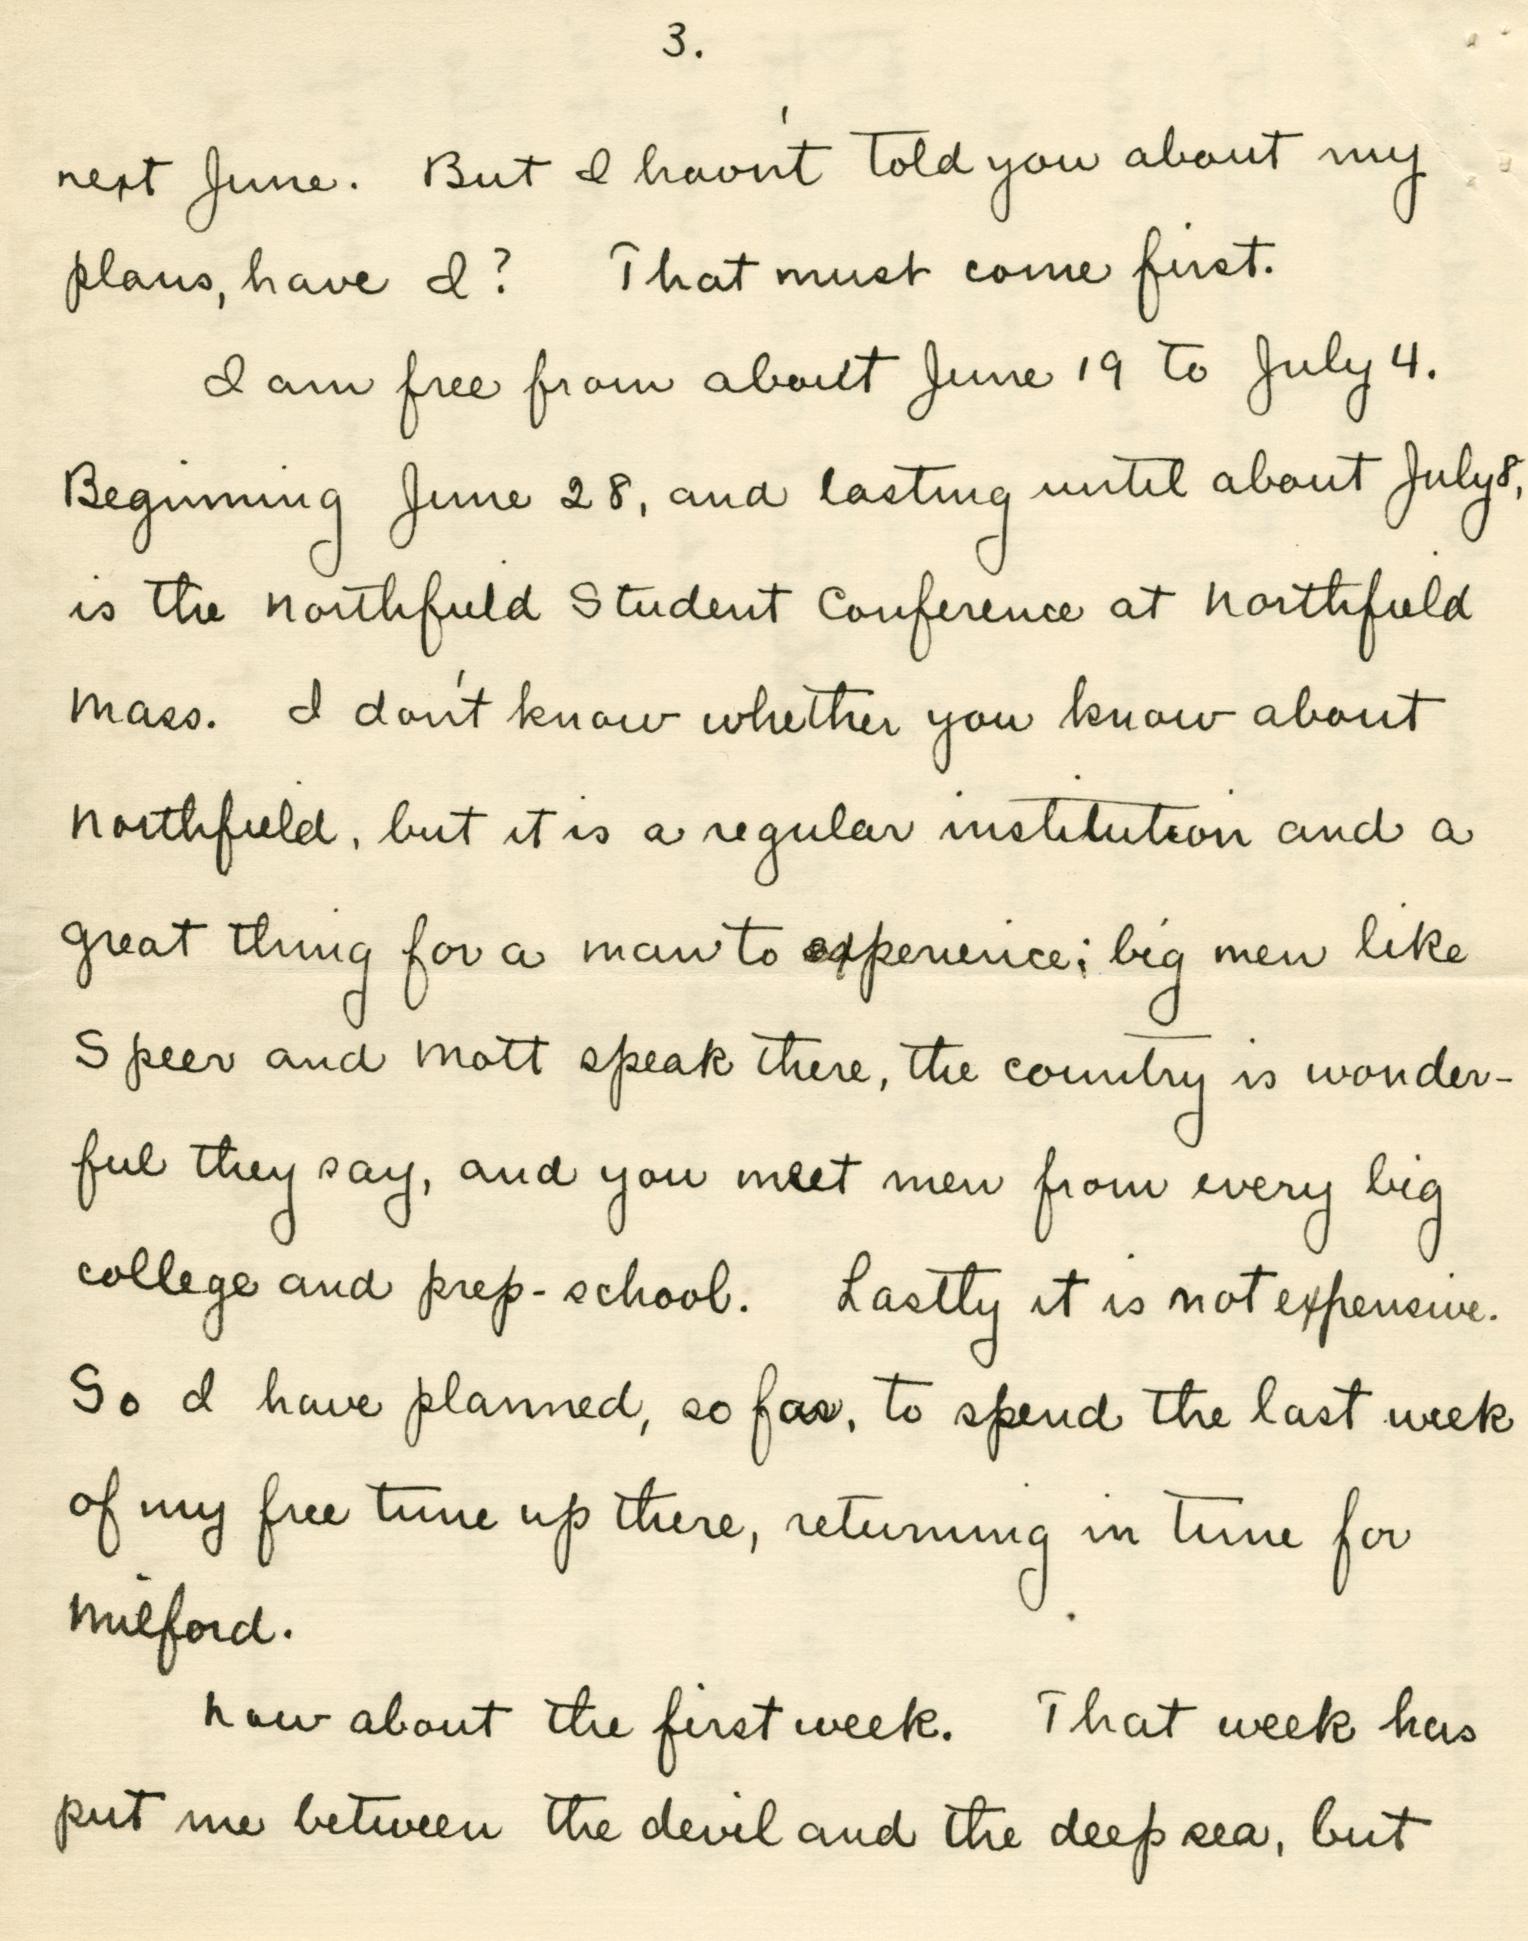 3.
next June. But I havn't told you about my
plans, have I? That must come first.
I am free from about June 19 to July 4.
Beginning June 28, and lasting until about July 8,
is the Northfield Student Conference at Northfield
Mass. I don't know whether you know about
Northfield, but it is a regular institution and a
great thing for a man to experience; big men like
Speer and Mott speak there, the country is wonder-
ful they say, and you meet men from every big
college and prep-school. Lastly it is not expensive.
So I have planned, so far, to spend the last week
of my free time up there, returning in time for
Milford.
Now about the first week. That week has
put me between the devil and the deep sea, but